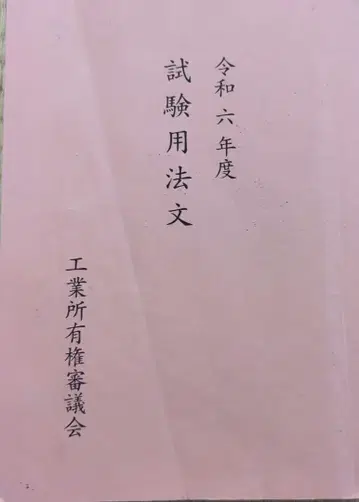 令和六年度
試験用法文
工業所有権審議会